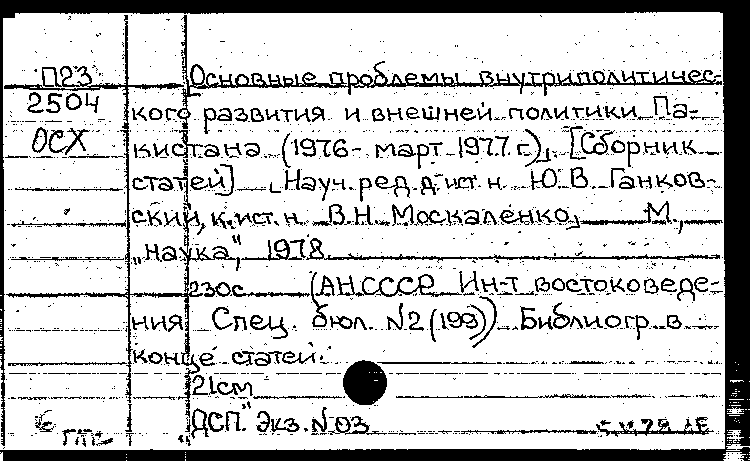 П23
2504
ОСХ
Основные проблемы внутриполитичес-
кого развития и внешней политики Па-
кистана (1976- март 1977 г.). [Сборник
статей] . Науч. ред. д-ист. н. Ю.В. Ганков-
ский, к. ист. н. В.Н. Москаленко, М.,
"Наука", 1978.
230с. (АН СССР. Ин-т востоковеде-
ния Спец. бюл. №2 (199)) Библиогр. в
конце статей.
21см
"ДСП." Экз. №03